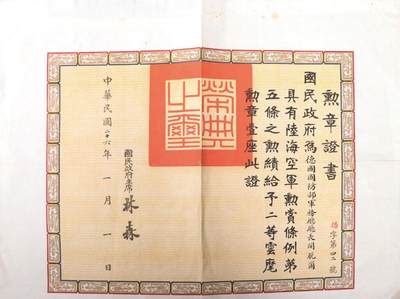 勳章證書
字第 號
國民政府為德國國防部軍務廳廳長
具有陸海空軍勳賞條例第
五條之勳績給予二等雲麾
勳章壹座此證
榮典之璽
國民政府主席 林森
中華民國二十六年 一月 一日